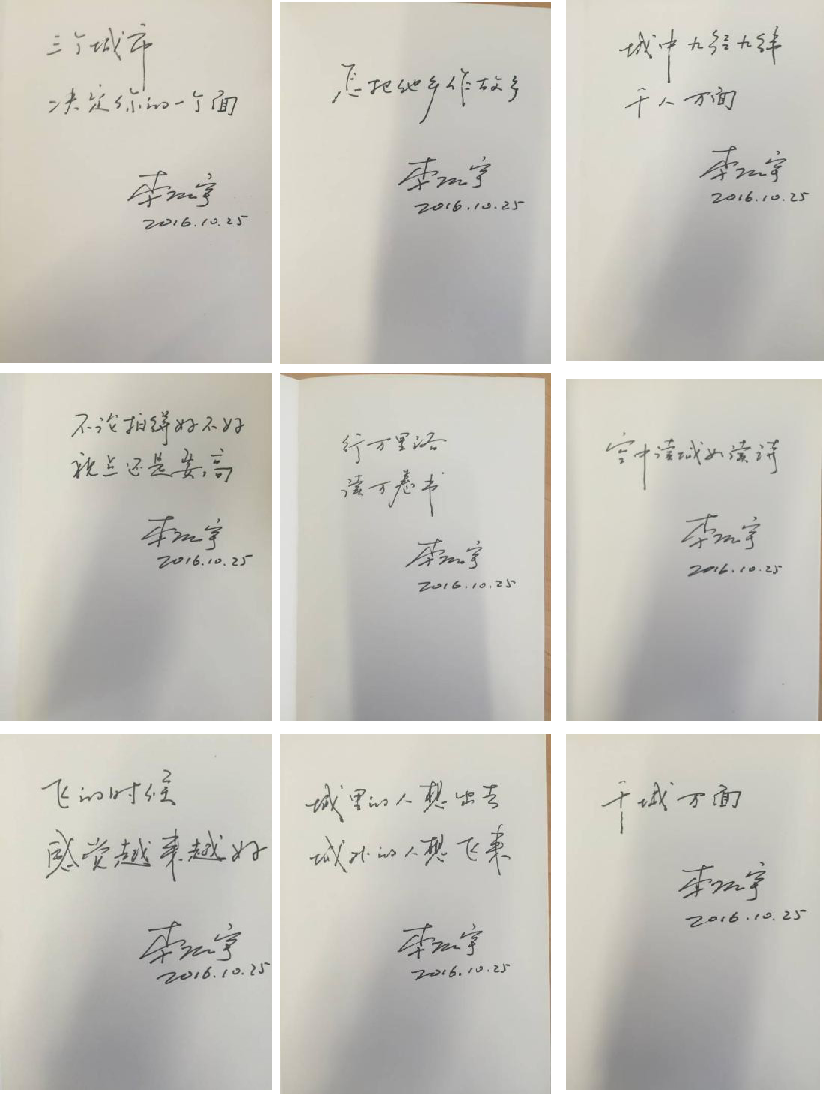 三个城市
决定你的一个面
李江宇
2016.10.25
怎把他乡作故乡
李江宇
2016.10.25
城中九经九纬
千人万面
李江宇
2016.10.25
不论拍得好不好
视点还是要高
李江宇
2016.10.25
行万里路
读万卷书
李江宇
2016.10.25
空中读城如读诗
李江宇
2016.10.25
飞的时候
感觉越来越好
李江宇
2016.10.25
城里的人想出去
城外的人想飞来
李江宇
2016.10.25
千城万面
李江宇
2016.10.25